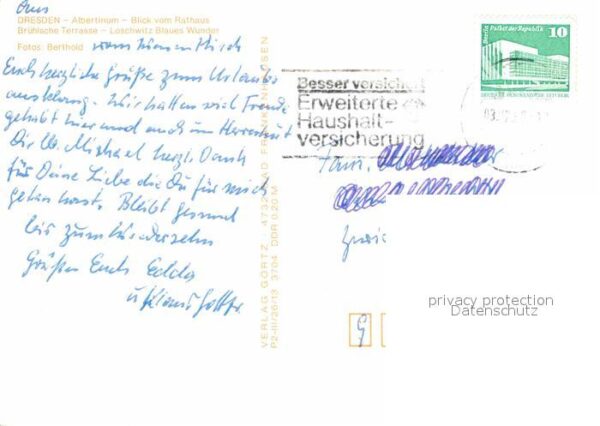 Aus
DRESDEN – Albertinum – Blick vom Rathaus
Brühlsche Terrasse – Loschwitz Blaues Wunder
Fotos: Berthold
Euch herzliche Grüße zum Urlaubs
ausklang. Wir hatten viel Freude
gehabt hier und auch in Herrnhut
Dir lb. Michael herzl. Dank
für Deine Liebe die Du für mich
getan hast. Bleibt gesund
bis zum Wiedersehn
Grüßen Euch Edda
u.
VERLAG GÖRTZ · 4732 BAD FRANKENHAUSEN
P2-III/26/13 3704 DDR 0,20 M
Besser versichert
Erweiterte
Haushalt-
versicherung
Berlin Palast der Republik
10
DEUTSCHE DEMOKRATISCHE REPUBLIK
Fam.
privacy protection
Datenschutz